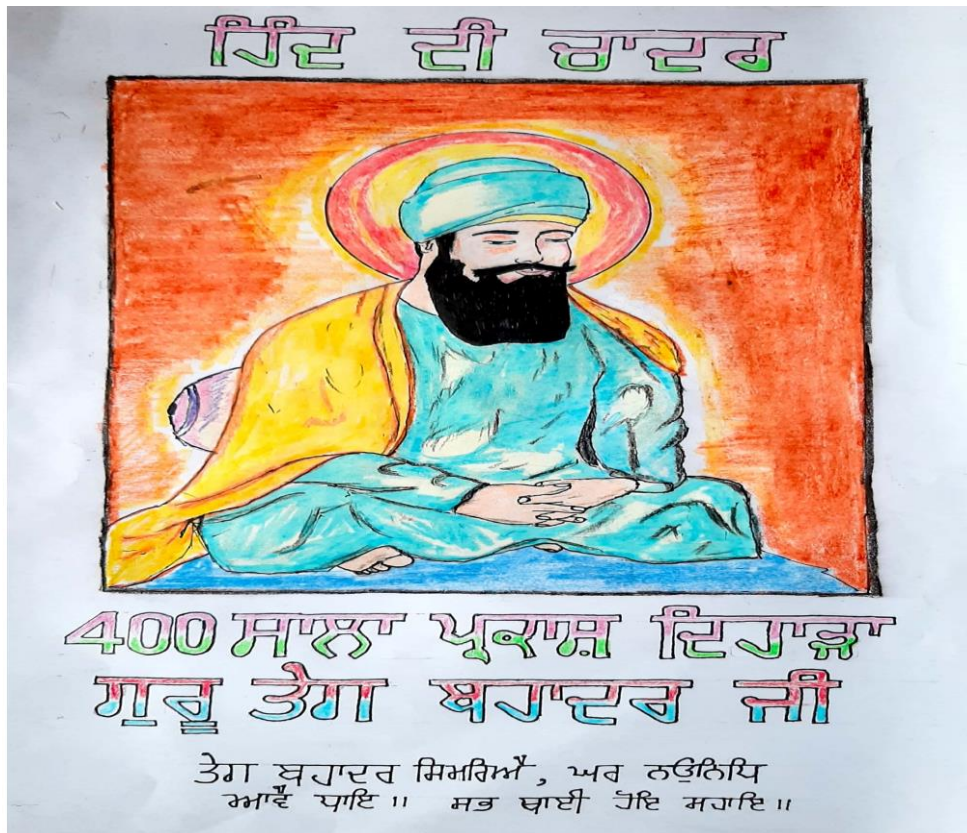 ਹਿੰਦ ਦੀ ਚਾਦਰ
400 ਸਾਲਾ ਪ੍ਰਕਾਸ਼ ਦਿਹਾੜਾ
ਗੁਰੂ ਤੇਗ ਬਹਾਦਰ ਜੀ
ਤੇਗ ਬਹਾਦਰ ਸਿਮਰਿਐ, ਘਰ ਨਉਨਿਧਿ
ਆਵੈ ਧਾਇ॥ ਸਭ ਥਾਈ ਹੋਇ ਸਹਾਇ॥